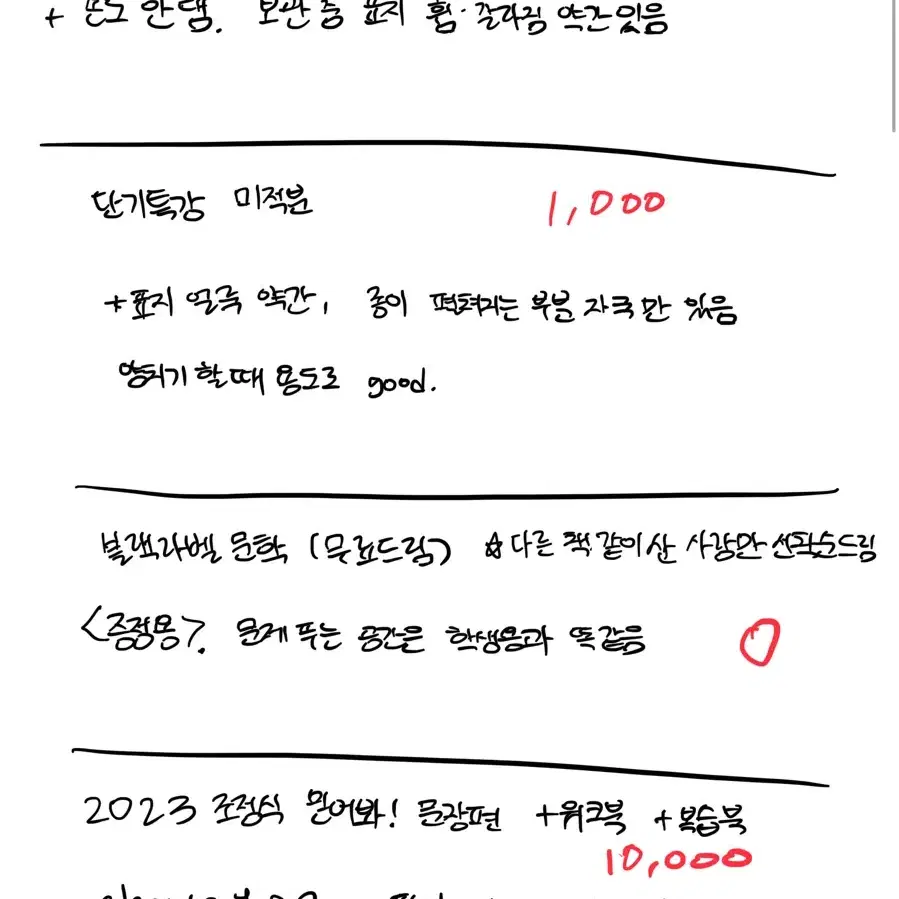 + 손도 안댐. 보관 중 표지 휨·갈라짐 약간있음
단기특강 미적분 1,000
+표지 얼룩 약간, 종이 펼쳐지는 부분 자국만 있음
양치기 할때 용도로 good.
블랙라벨 문학 (무료드림) ☆다른 책 같이산 사람만 선착순드림
<증정용>. 문제 푸는 공간은 학생용과 똑같음 0
2023 조정식 믿어봐! 문장편 +워크북 +복습북
10,000